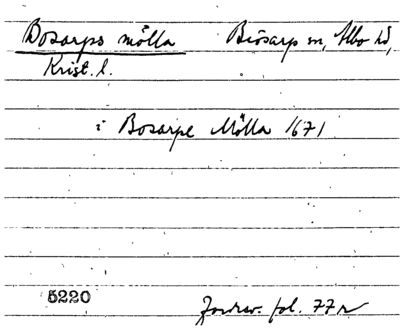 Bosarps mölla Brösarp sn, Albo hd,
Krist. l.
i Bosarpe Mölla 1671
5220 Jordrev. fol. 77 r